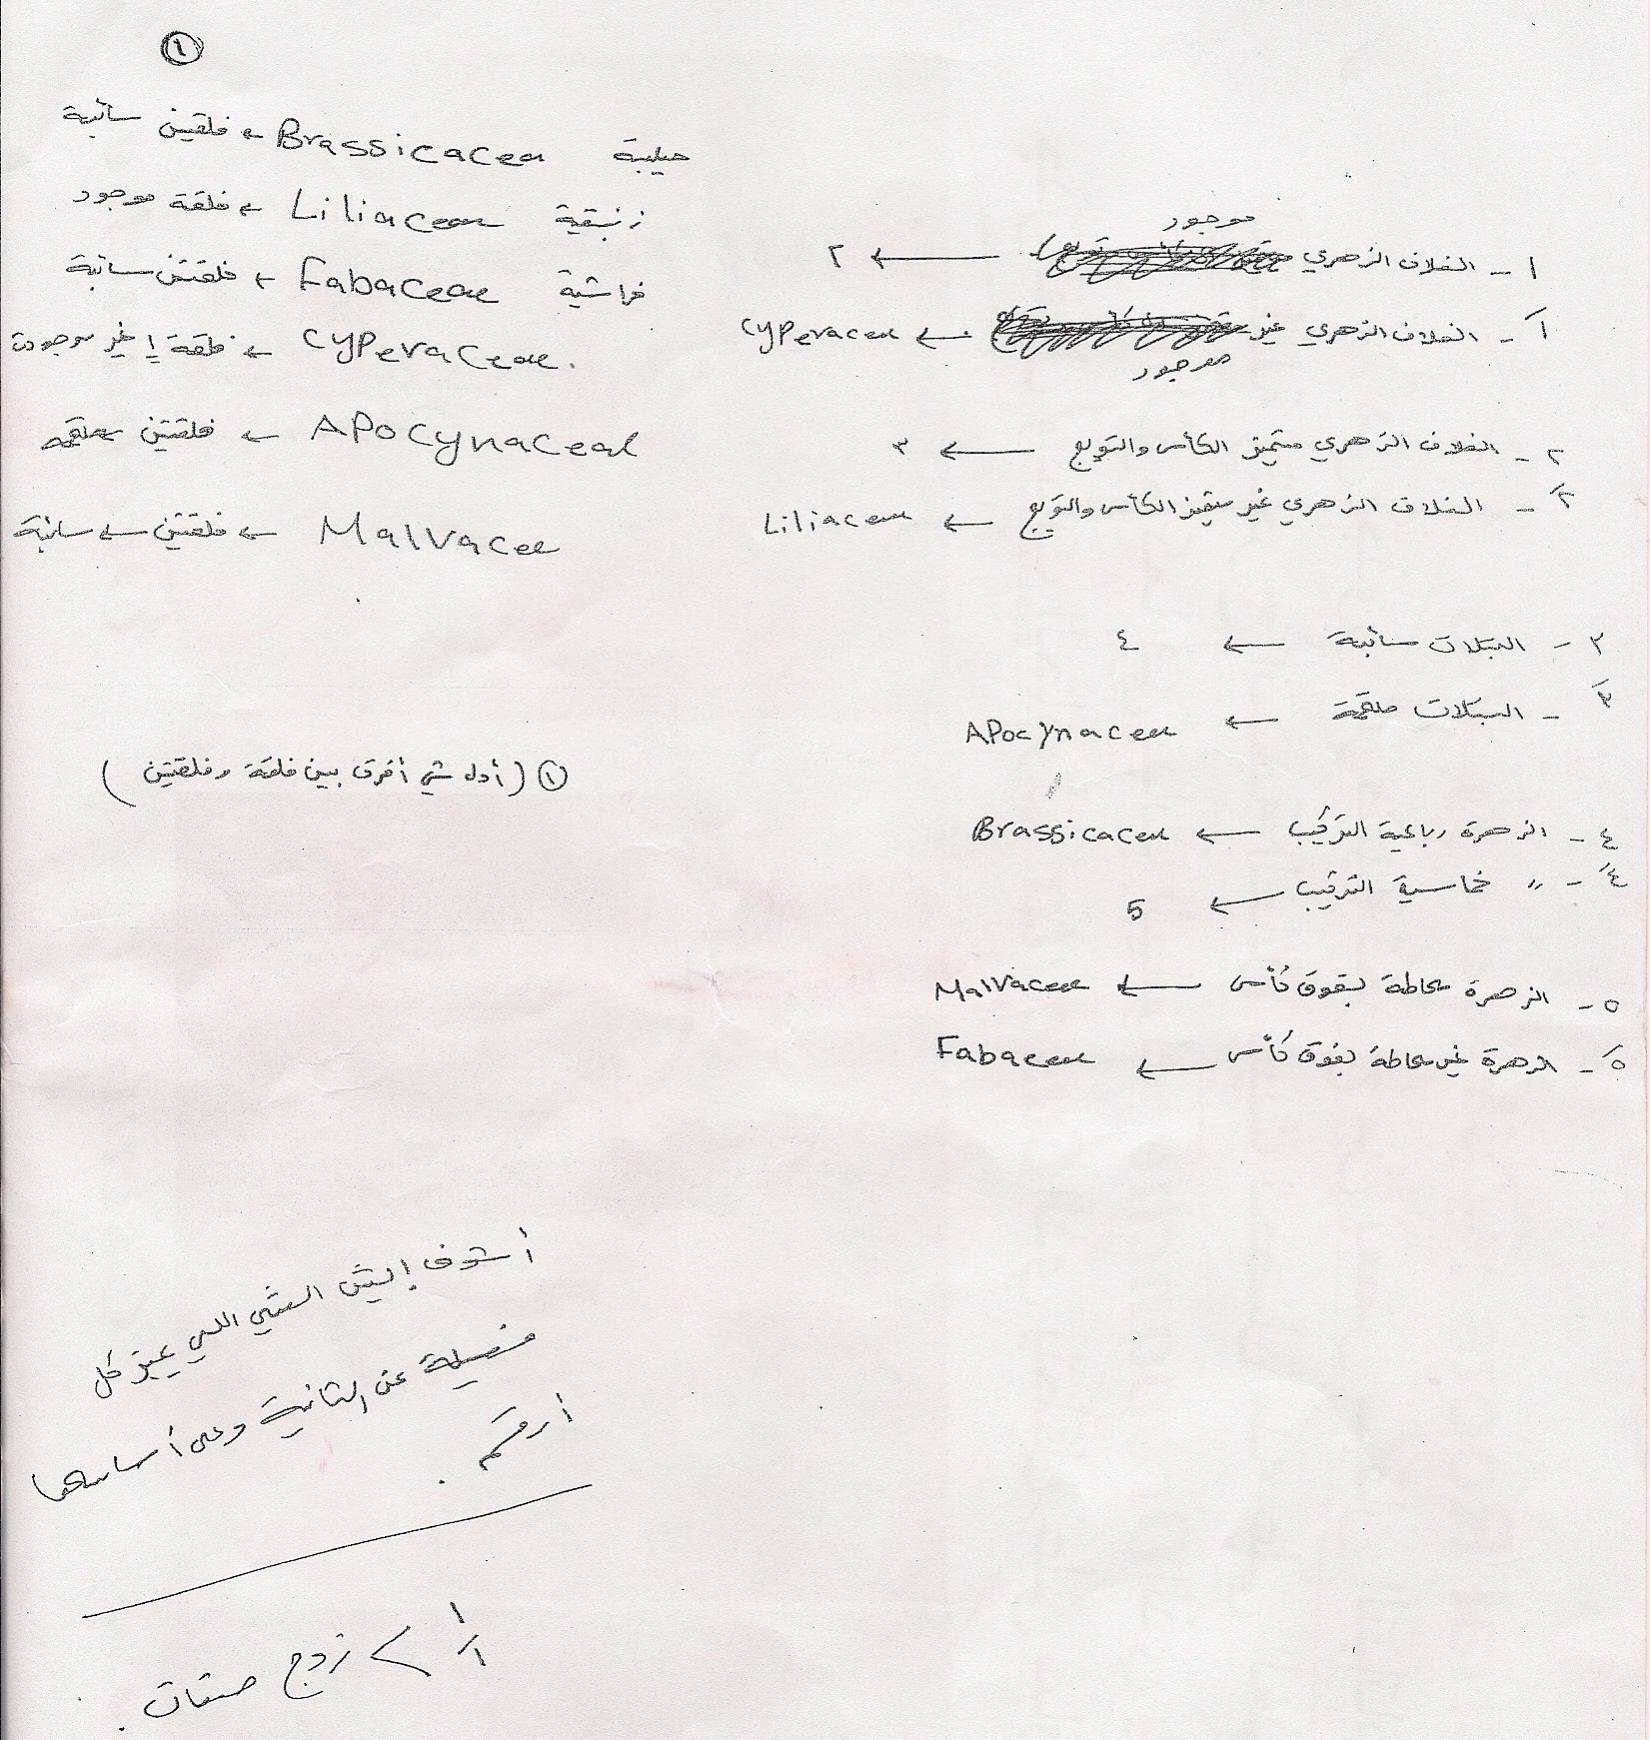 ١
صليبية Brassicacea ← فلقتين سائبة
زنبقية Liliaceae ← فلقة موجود
فراشية Fabaceae ← فلقتين سائبة
Cyperaceae. ← فلقة غير موجودة
APocynaceae ← فلقتين ملتحمة
Malvacee ← فلقتين ← سائبة
① (أول شي أفرق بين فلقة وفلقتين)
موجود
١ - الغلاف الزهري ← ٢
١َ - الغلاف الزهري غير ← Cyperaceae
موجود
٢ - الغلاف الزهري متميز الكأس والتويج ← ٣
٢َ - الغلاف الزهري غير متميز الكأس والتويج ← Liliaceae
٣ - البتلات سائبة ← ٤
٣َ - البتلات ملتحمة ← APocynaceae
٤ - الزهرة رباعية التركيب ← Brassicaceae
٤َ - 〃 خماسية التركيب ← 5
٥ - الزهرة محاطة بفوق كأس ← Malvaceae
٥َ - الزهرة غير محاطة بفوق كأس ← Fabaceae
أشوف إيش الشي اللي يميز كل
فصيلة عن الثانية وعلى أساسها
أرقم.
١
١َ > زوج صفات.